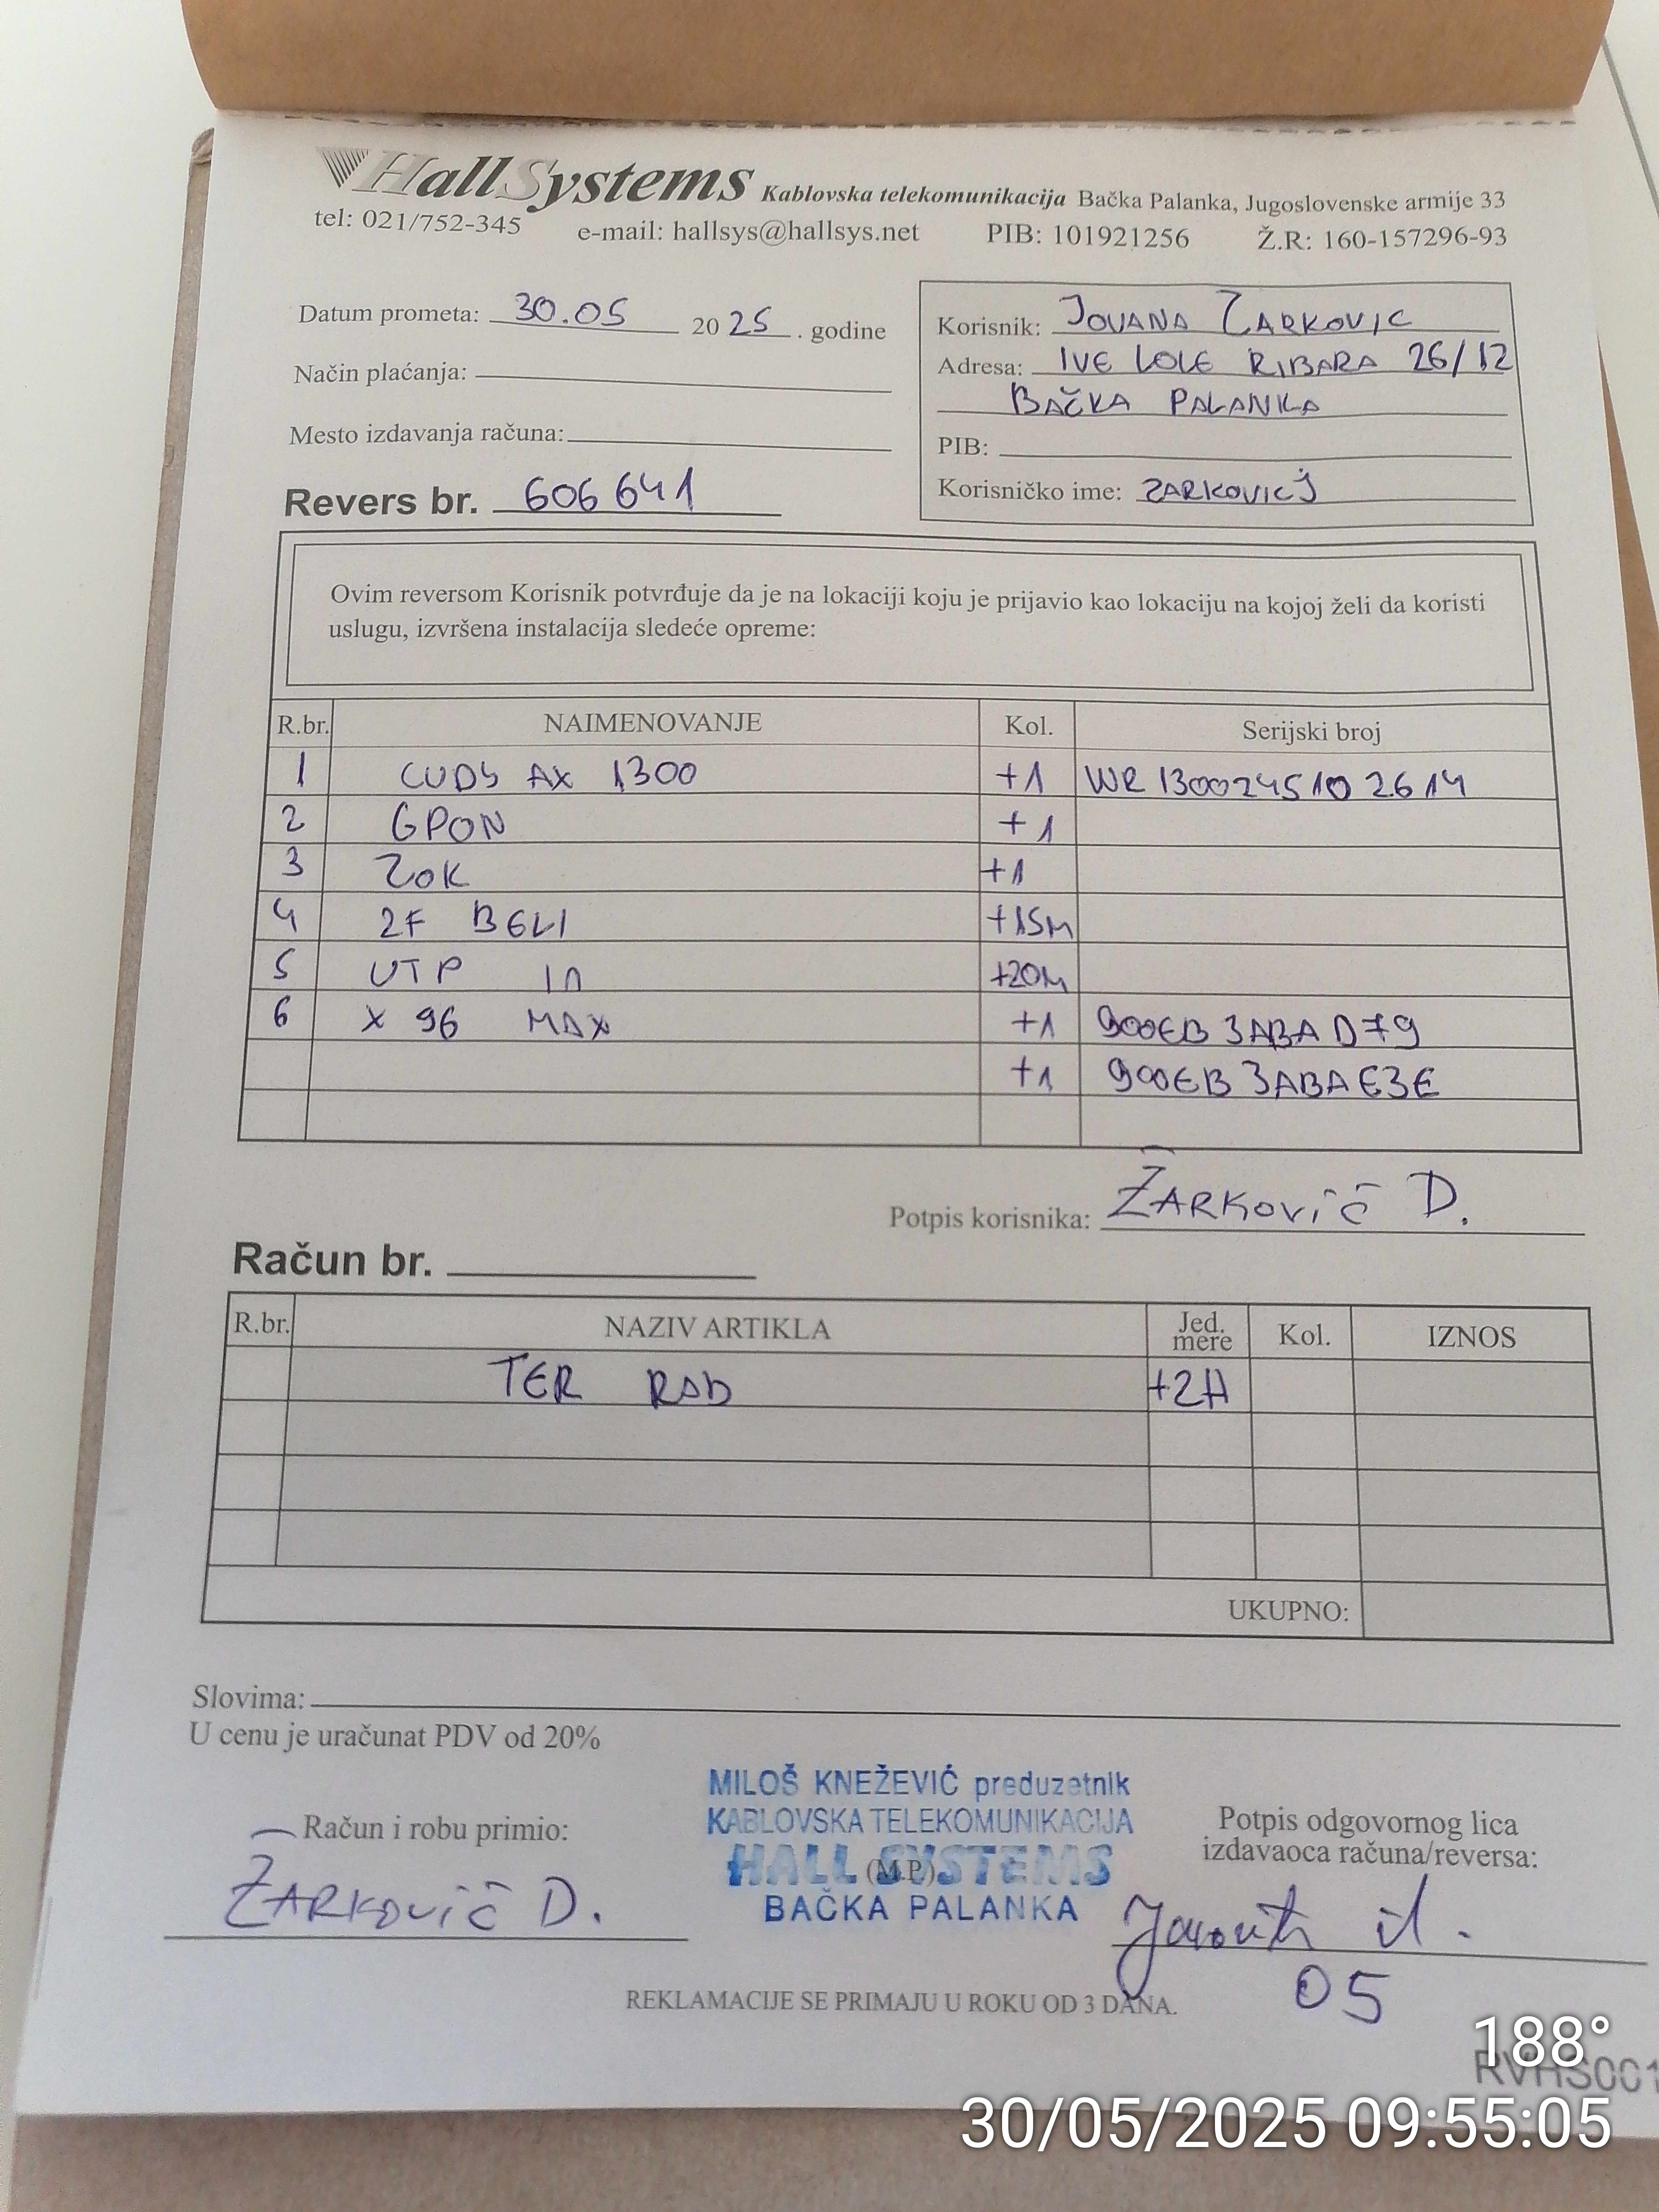 HallSystems Kablovska telekomunikacija Bačka Palanka, Jugoslovenske armije 33
tel: 021/752-345 e-mail: hallsys@hallsys.net PIB: 101921256 Ž.R: 160-157296-93
Datum prometa: 30.05 2025. godine
Način plaćanja:
Mesto izdavanja računa:
Revers br. 606641
Korisnik: JOVANA ZARKOVIC
Adresa: IVE LOLE RIBARA 26/12
BAČKA PALANKA
PIB:
Korisničko ime: ZARKOVICJ
Ovim reversom Korisnik potvrđuje da je na lokaciji koju je prijavio kao lokaciju na kojoj želi da koristi
uslugu, izvršena instalacija sledeće opreme:
R.br. NAIMENOVANJE Kol. Serijski broj
1 CUDY AX 1300 +1 WR1300245102614
2 GPON +1
3 ZOK +1
4 2F BELI +15M
5 UTP IN +20M
6 X 96 MAX +1 900EB3ABAD79
+1 900EB3ABAE3E
Potpis korisnika: ŽARKOVIĆ D.
Račun br.
R.br. NAZIV ARTIKLA Jed. mere Kol. IZNOS
TER RAD +2H
UKUPNO:
Slovima:
U cenu je uračunat PDV od 20%
Račun i robu primio:
ŽARKOVIĆ D.
MILOŠ KNEŽEVIĆ preduzetnik
KABLOVSKA TELEKOMUNIKACIJA
HALL SYSTEMS
(M.P.)
BAČKA PALANKA
Potpis odgovornog lica
izdavaoca računa/reversa:
05
REKLAMACIJE SE PRIMAJU U ROKU OD 3 DANA.
188°
RVHS001
30/05/2025 09:55:05